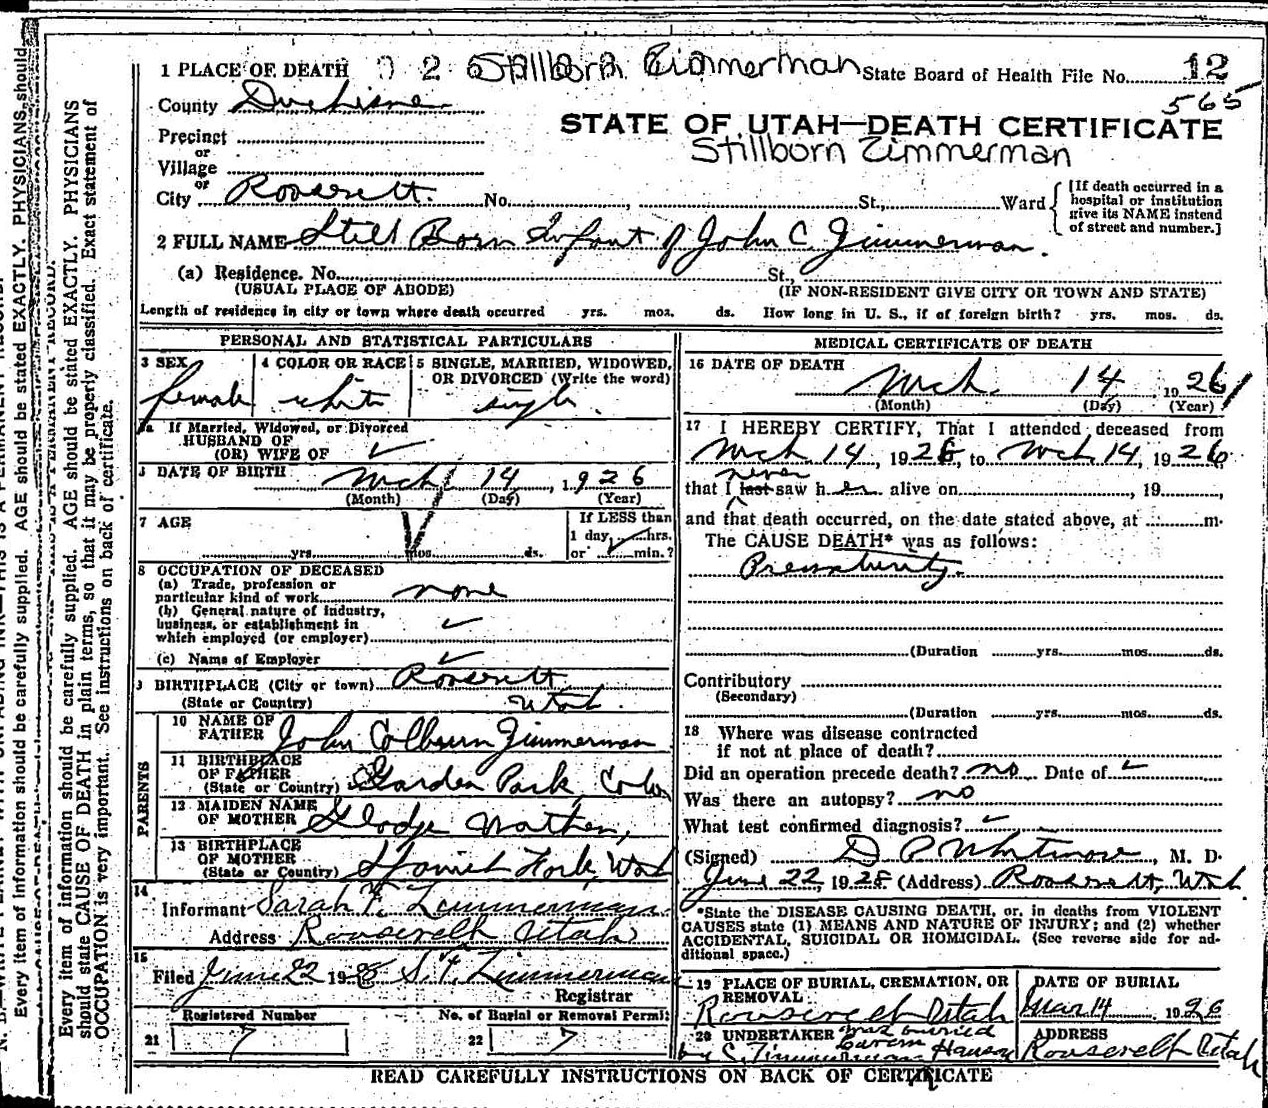 1 PLACE OF DEATH 0 2 6 Stillborn Zimmerman State Board of Health File No. 12
565
County Duchesne
STATE OF UTAH—DEATH CERTIFICATE
Precinct
or
Stillborn Zimmerman
Village
or
City Roosevelt. No. , St., Ward
[If death occurred in a
hospital or institution
give its NAME instead
of street and number.]
2 FULL NAME Still Born Infant of John C Zimmerman.
(a) Residence. No. St.,
(USUAL PLACE OF ABODE) (IF NON-RESIDENT GIVE CITY OR TOWN AND STATE)
Length of residence in city or town where death occurred yrs. mos. ds. How long in U. S., if of foreign birth? yrs. mos. ds.
PERSONAL AND STATISTICAL PARTICULARS
3 SEX 4 COLOR OR RACE 5 SINGLE, MARRIED, WIDOWED,
OR DIVORCED (Write the word)
female white single
5a If Married, Widowed, or Divorced
HUSBAND OF
(OR) WIFE OF
DATE OF BIRTH Mch 14, 1926
(Month) (Day) (Year)
7 AGE If LESS than
1 day, hrs.
yrs. mos. ds. or min.?
8 OCCUPATION OF DECEASED
(a) Trade, profession or
particular kind of work none
(b) General nature of industry,
business, or establishment in
which employed (or employer)
(c) Name of Employer
9 BIRTHPLACE (City or town) Roosevelt
(State or Country) Utah.
PARENTS
10 NAME OF
FATHER John Colburn Zimmerman
11 BIRTHPLACE
OF FATHER
(State or Country) Garden Park, Colo
12 MAIDEN NAME
OF MOTHER
13 BIRTHPLACE
OF MOTHER
(State or Country) Spanish Fork, Utah
14
Informant Sarah F. Zimmerman
Address Roosevelt Utah
15
Filed June 22 1928 S. F. Zimmerman
Registrar
Registered Number No. of Burial or Removal Permit
21 7 22 7
MEDICAL CERTIFICATE OF DEATH
16 DATE OF DEATH
Mch. 14 1926
(Month) (Day) (Year)
17 I HEREBY CERTIFY, That I attended deceased from
Mch 14, 1926, to Mch 14, 1926
never
that I last saw her alive on , 19 ,
and that death occurred, on the date stated above, at m.
The CAUSE DEATH* was as follows:
Prematurity.
(Duration yrs. mos. ds.
Contributory
(Secondary)
(Duration yrs. mos. ds.
18 Where was disease contracted
if not at place of death?
Did an operation precede death? no Date of
Was there an autopsy? no
What test confirmed diagnosis?
(Signed) D P Whitmore, M. D.
June 22, 1928 (Address) Roosevelt, Utah
*State the DISEASE CAUSING DEATH, or, in deaths from VIOLENT
CAUSES state (1) MEANS AND NATURE OF INJURY; and (2) whether
ACCIDENTAL, SUICIDAL OR HOMICIDAL. (See reverse side for ad-
ditional space.)
19 PLACE OF BURIAL, CREMATION, OR
REMOVAL
Roosevelt Utah
DATE OF BURIAL
Mar 14 1926
20 UNDERTAKER was buried
by C. Zimmerman Hanson
ADDRESS
Roosevelt Utah
READ CAREFULLY INSTRUCTIONS ON BACK OF CERTIFICATE
Every item of information should be carefully supplied. AGE should be stated EXACTLY. PHYSICIANS should
Every item of information should be carefully supplied. AGE should be stated EXACTLY. PHYSICIANS
should state CAUSE OF DEATH in plain terms, so that it may be properly classified. Exact statement of
OCCUPATION is very important. See instructions on back of certificate.